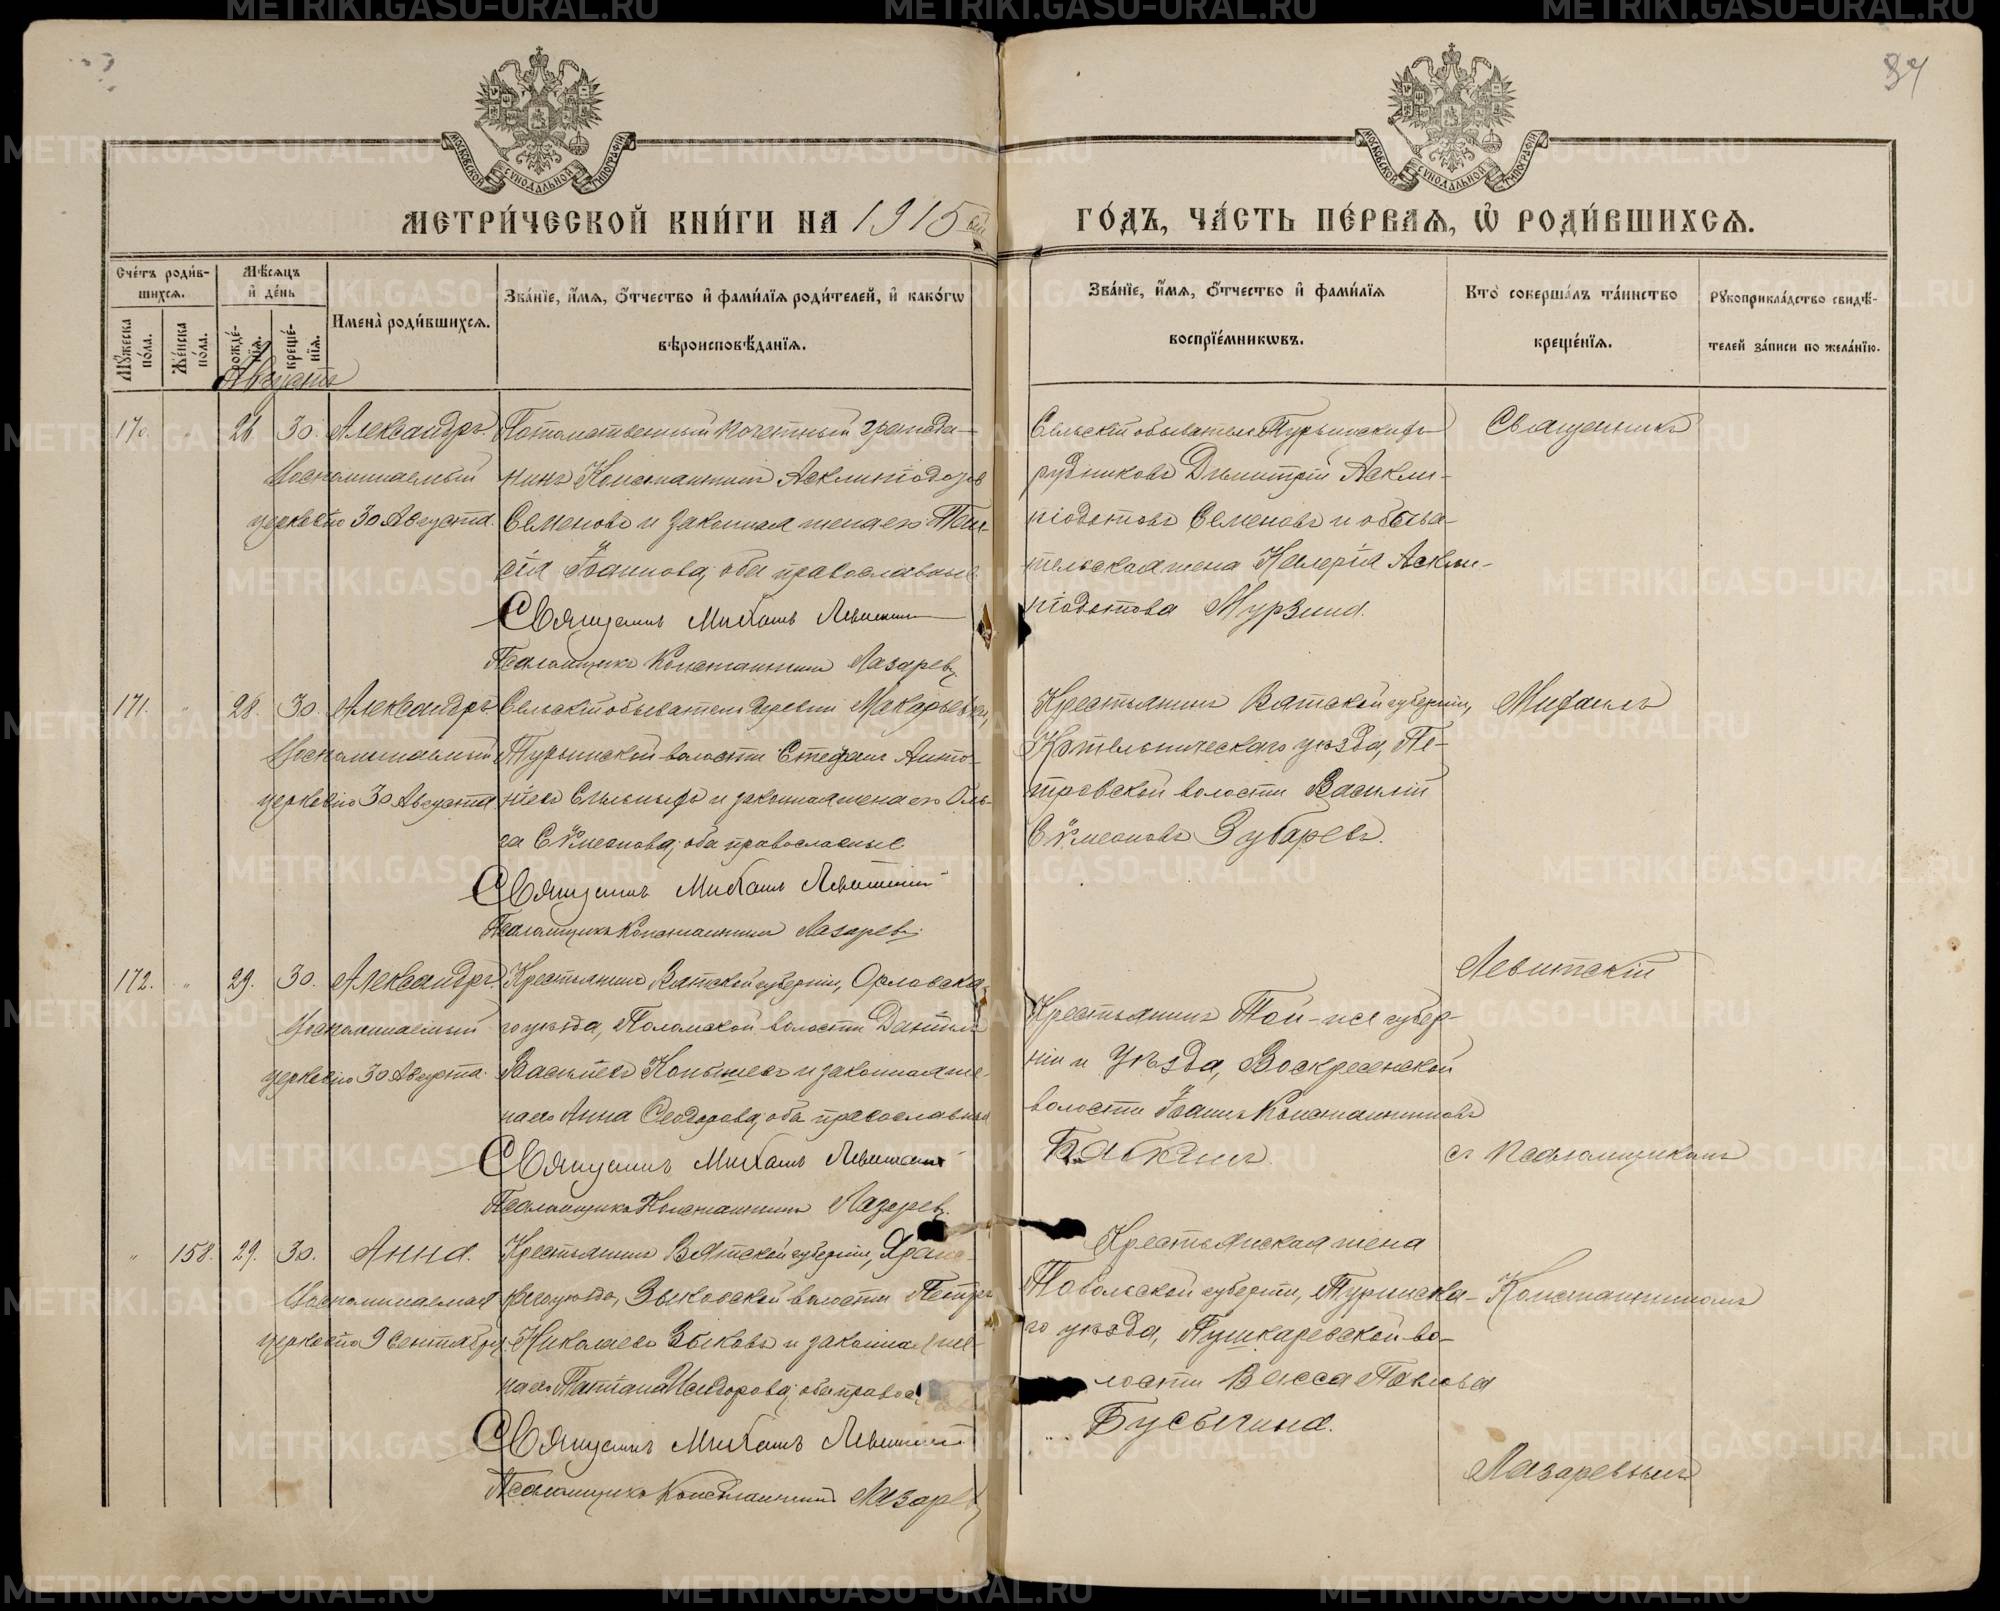 87
МОСКОВСКОЙ СѴНОДАЛЬНОЙ ТИПОГРАФІИ
МОСКОВСКОЙ СѴНОДАЛЬНОЙ ТИПОГРАФІИ
МЕТРИ́ЧЕСКОЙ КНИ́ГИ НА 1915 ый ГО́ДЪ, ЧА́СТЬ ПЕ́РВАЯ, Ѡ҆ РОДИ́ВШИХСЯ.
Сче́тъ роди́вшихся.
Мꙋ́жеска по́ла.
Же́нска по́ла.
Мѣ́сяцъ и҆ де́нь
рожде́нїя.
креще́нїя.
Имена̀ роди́вшихся.
Зва́нїе, и҆́мя, ѻ҆́тчество и҆ фами́лїя роди́телей, и҆ како́гѡ вѣроисповѣ́данїя.
Зва́нїе, и҆́мя, ѻ҆́тчество и҆ фами́лїя воспрїе́мникѡвъ.
Кто̀ соверша́лъ та́инство креще́нїя.
Рꙋкоприкла́дство свидѣ́телей за́писи по жела́нїю.
Августъ
170. " 26. 30. Александръ.
Воспоминаемый
церковію 30 Августа.
Потомственный почетный гражда-
нинъ Константинъ Асклипіодотовъ
Семеновъ и законная жена его Таи-
сія Іоаннова, оба православные
Священникъ Михаилъ Левитскій
Псаломщикъ Константинъ Лазаревъ
Сельскій обыватель Турьинскихъ
рудниковъ Димитрій Аскли-
піодотовъ Семеновъ и обыва-
тельская жена Валерія Аскли-
піодотова Мурзина.
Священникъ
171. " 28. 30. Александръ.
Воспоминаемый
церковію 30 Августа
Сельскій обыватель деревни Макарьевки,
Турьинской волости Стефанъ Анто-
ніевъ и законная жена его Оль-
га Сѵмеонова, оба православные
Священникъ Михаилъ Левитскій
Псаломщикъ Константинъ Лазаревъ
Крестьянинъ Вятской губерніи,
Котельническаго уѣзда, Пе-
тровской волости Василій
Сѵмеоновъ Зубаревъ.
Михаилъ
172. " 29. 30. Александръ
Воспоминаемый
церковію 30 Августа.
Крестьянинъ Вятской губерніи, Орловска-
го уѣзда, Поломской волости Даніилъ
Васильевъ Копышевъ и законная же-
на его Анна Ѳеодорова, оба православные
Священникъ Михаилъ Левитскій
Псаломщикъ Константинъ Лазаревъ.
Левитскій
Крестьянинъ губер-
ніи и уѣзда, Воскресенской
волости Іоаннъ Константиновъ
Бабкинъ.
съ псаломщикомъ
" 158. 29. 30. Анна.
Воспоминаемая
церковію 9 Сентября.
Крестьянинъ Вятской губерніи, Яранс-
каго уѣзда, Зыковской волости Петръ
Николаевъ Зыковъ и законная же-
на его Татіана Исидорова, оба правос
Священникъ Михаилъ Левитскій
Псаломщикъ Константинъ Лазаревъ
Крестьянская жена
Тобольской губерніи, Туринска-
го уѣзда, Пушкаревской во-
лости Васса Павлова
Бусыгина.
Константиномъ
Лазаревымъ
METRIKI.GASO-URAL.RU